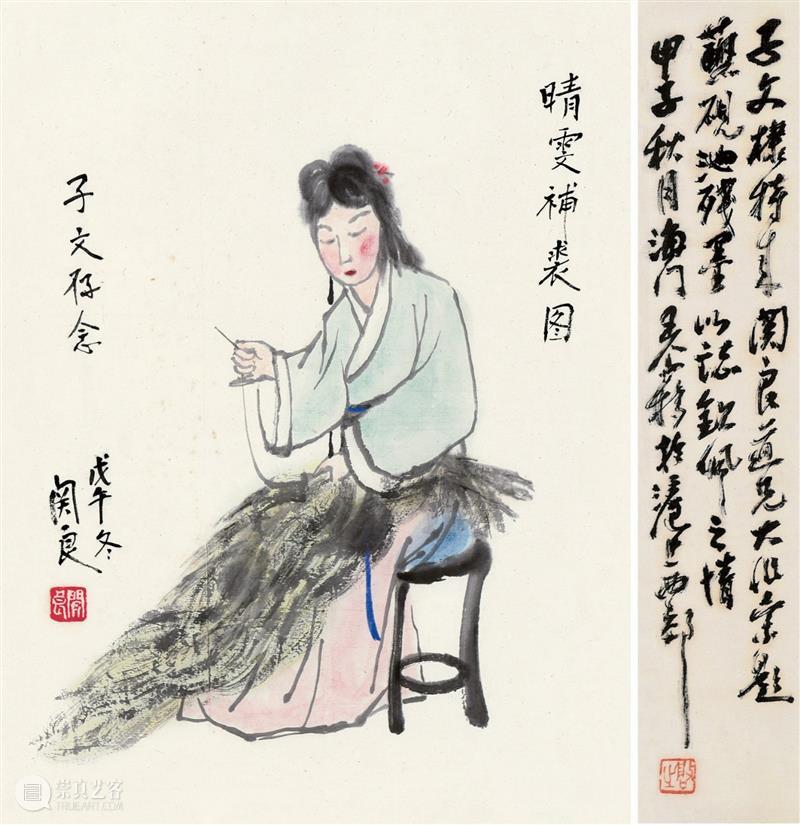 晴雯補裘图
子文存念
戊午冬
関良
子文棣持来関良道兄大作索题
蘸硯池残墨以誌欽佩之情
甲子秋月海门於滬上西郊
崇真艺客